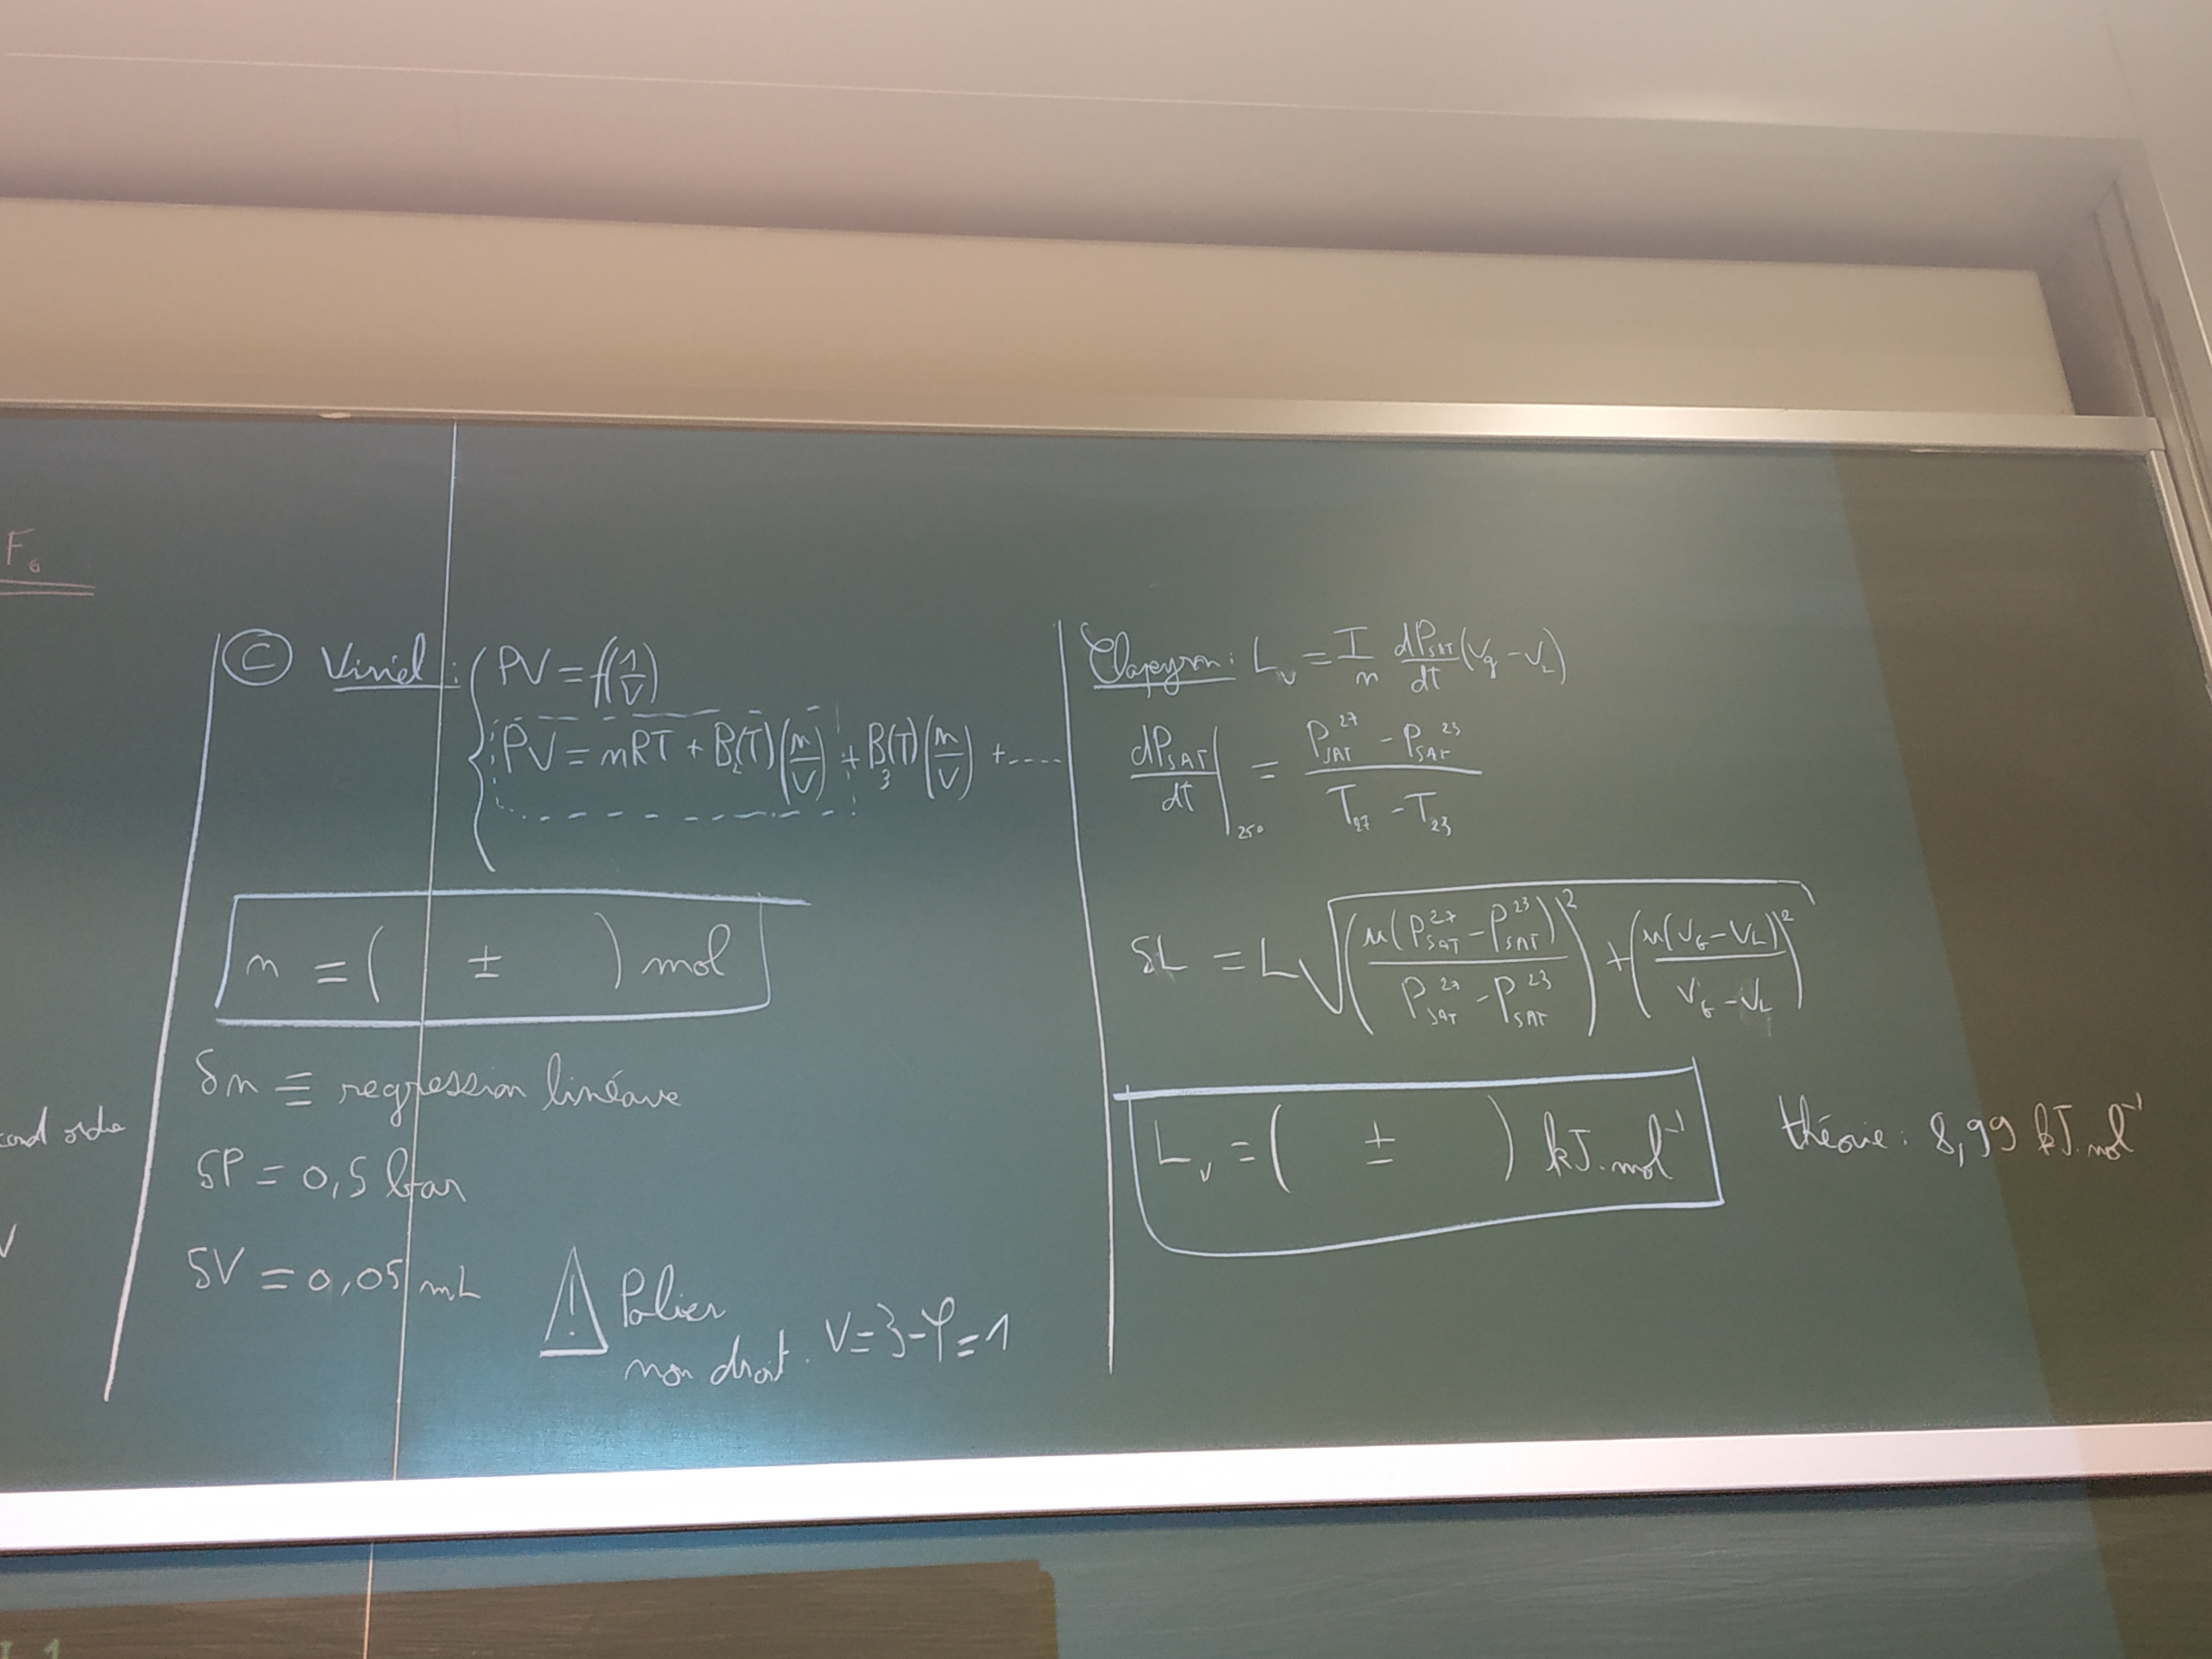 F₆
cond ordre
V
Ⓒ Viriel : { PV = f(1/V)
PV = nRT + B₂(T)(n/V) + B₃(T)(n/V) + ....
n = (    ±    ) mol
δn ≡ regression linéaire
δP = 0,5 bar
δV = 0,05 mL
⚠ Palier
non droit. V = 3 - φ = 1
Clapeyron : L_v = T/n dP_SAT/dt (V_g - V_L)
dP_SAT/dt |_25° = (P_SAT^27 - P_SAT^23)/(T_27 - T_23)
δL = L √((u(P_SAT^27 - P_SAT^23)/(P_SAT^27 - P_SAT^23))² + (u(V_G - V_L)/(V_G - V_L))²)
L_v = (    ±    ) kJ.mol⁻¹
théorie : 8,99 kJ.mol⁻¹